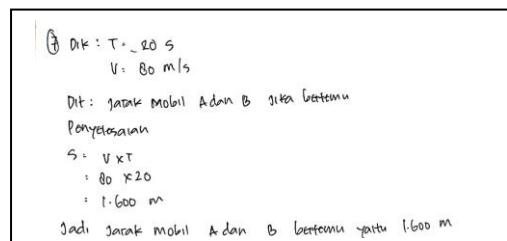 ⑦ Dik : T = 20 s
V = 80 m/s
Dit : Jarak mobil A dan B jika bertemu
Penyelesaian
S = V x T
= 80 x 20
= 1.600 m
Jadi jarak mobil A dan B bertemu yaitu 1.600 m